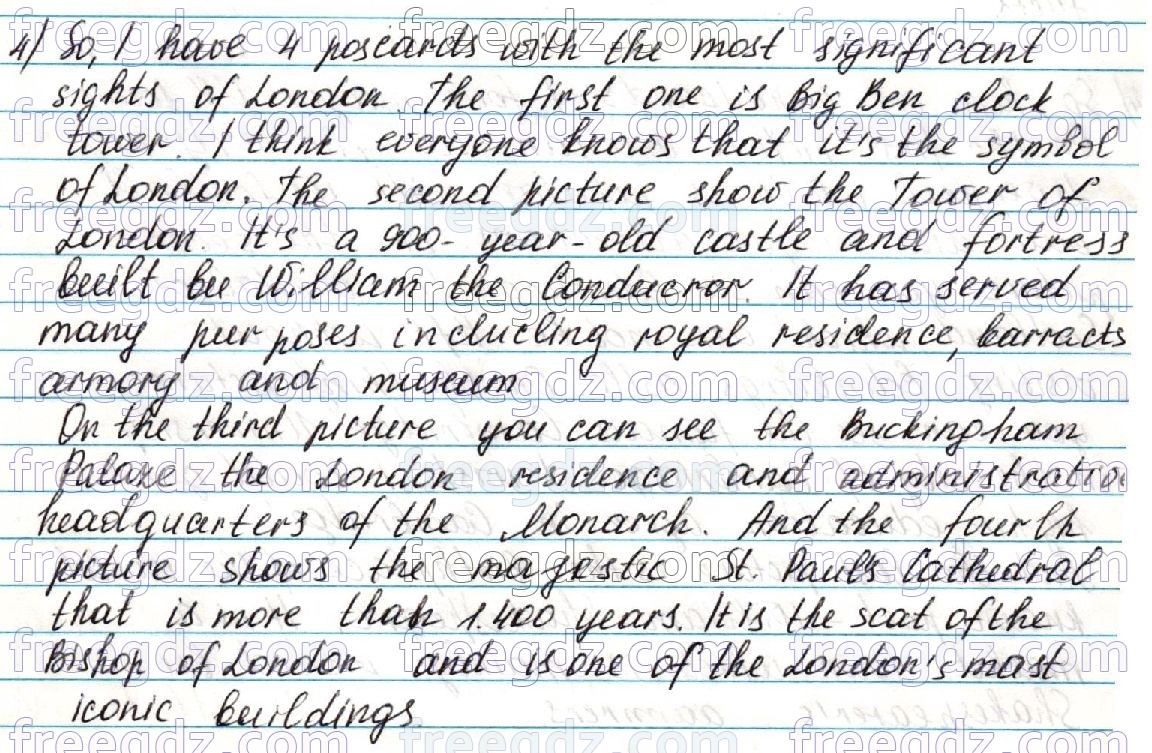 4) So, I have 4 poscards with the most significant
sights of London. The first one is Big Ben clock
tower. I think everyone knows that it's the symbol
of London. The second picture show the Tower of
London. It's a 900-year-old castle and fortress
built by William the Conducror. It has served
many purposes including royal residence, barracts
armory and museum
On the third picture you can see the Buckingham
Palaxe the London residence and administrative
headquarters of the Monarch. And the fourth
picture shows the majestic St. Paul's Cathedral
that is more than 1.400 years. It is the scat of the
Bishop of London and is one of the London's mast
iconic buildings
freegdz.com